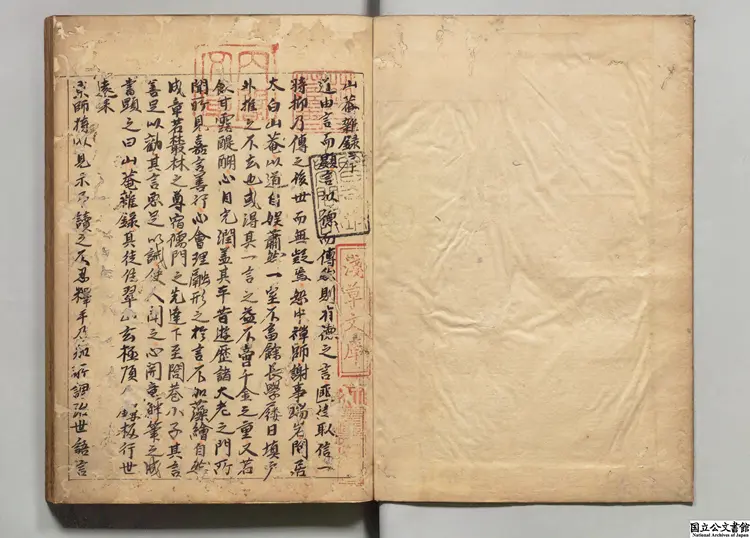 山菴雜錄序
道由言而顯言以德而傳然則有德之言匪徒取信一
時抑乃傳之後世而無疑焉恕中禪師謝事瑞岩閑居
太白山菴以道自娛蕭然一室不畜餘長學屨日填戶
外推之不去也或得其一言之益不啻千金之重又若
飲甘露醍醐心目充潤蓋其平昔遊歷諸大老之門所
聞所見嘉言善行心會理融形之於言不加藻繪自然
成章若叢林之尊宿儒門之先達下至閭巷小子其言
善足以勸其言惡足以誡使人聞之心開意解筆之成
書題之曰山菴雜錄其徒住翠山玄極頂 鋟板行世
遠來
京師持以見示予讀之不忍釋手乃知所謂治世語言
淺草文庫
国立公文書館
National Archives of Japan